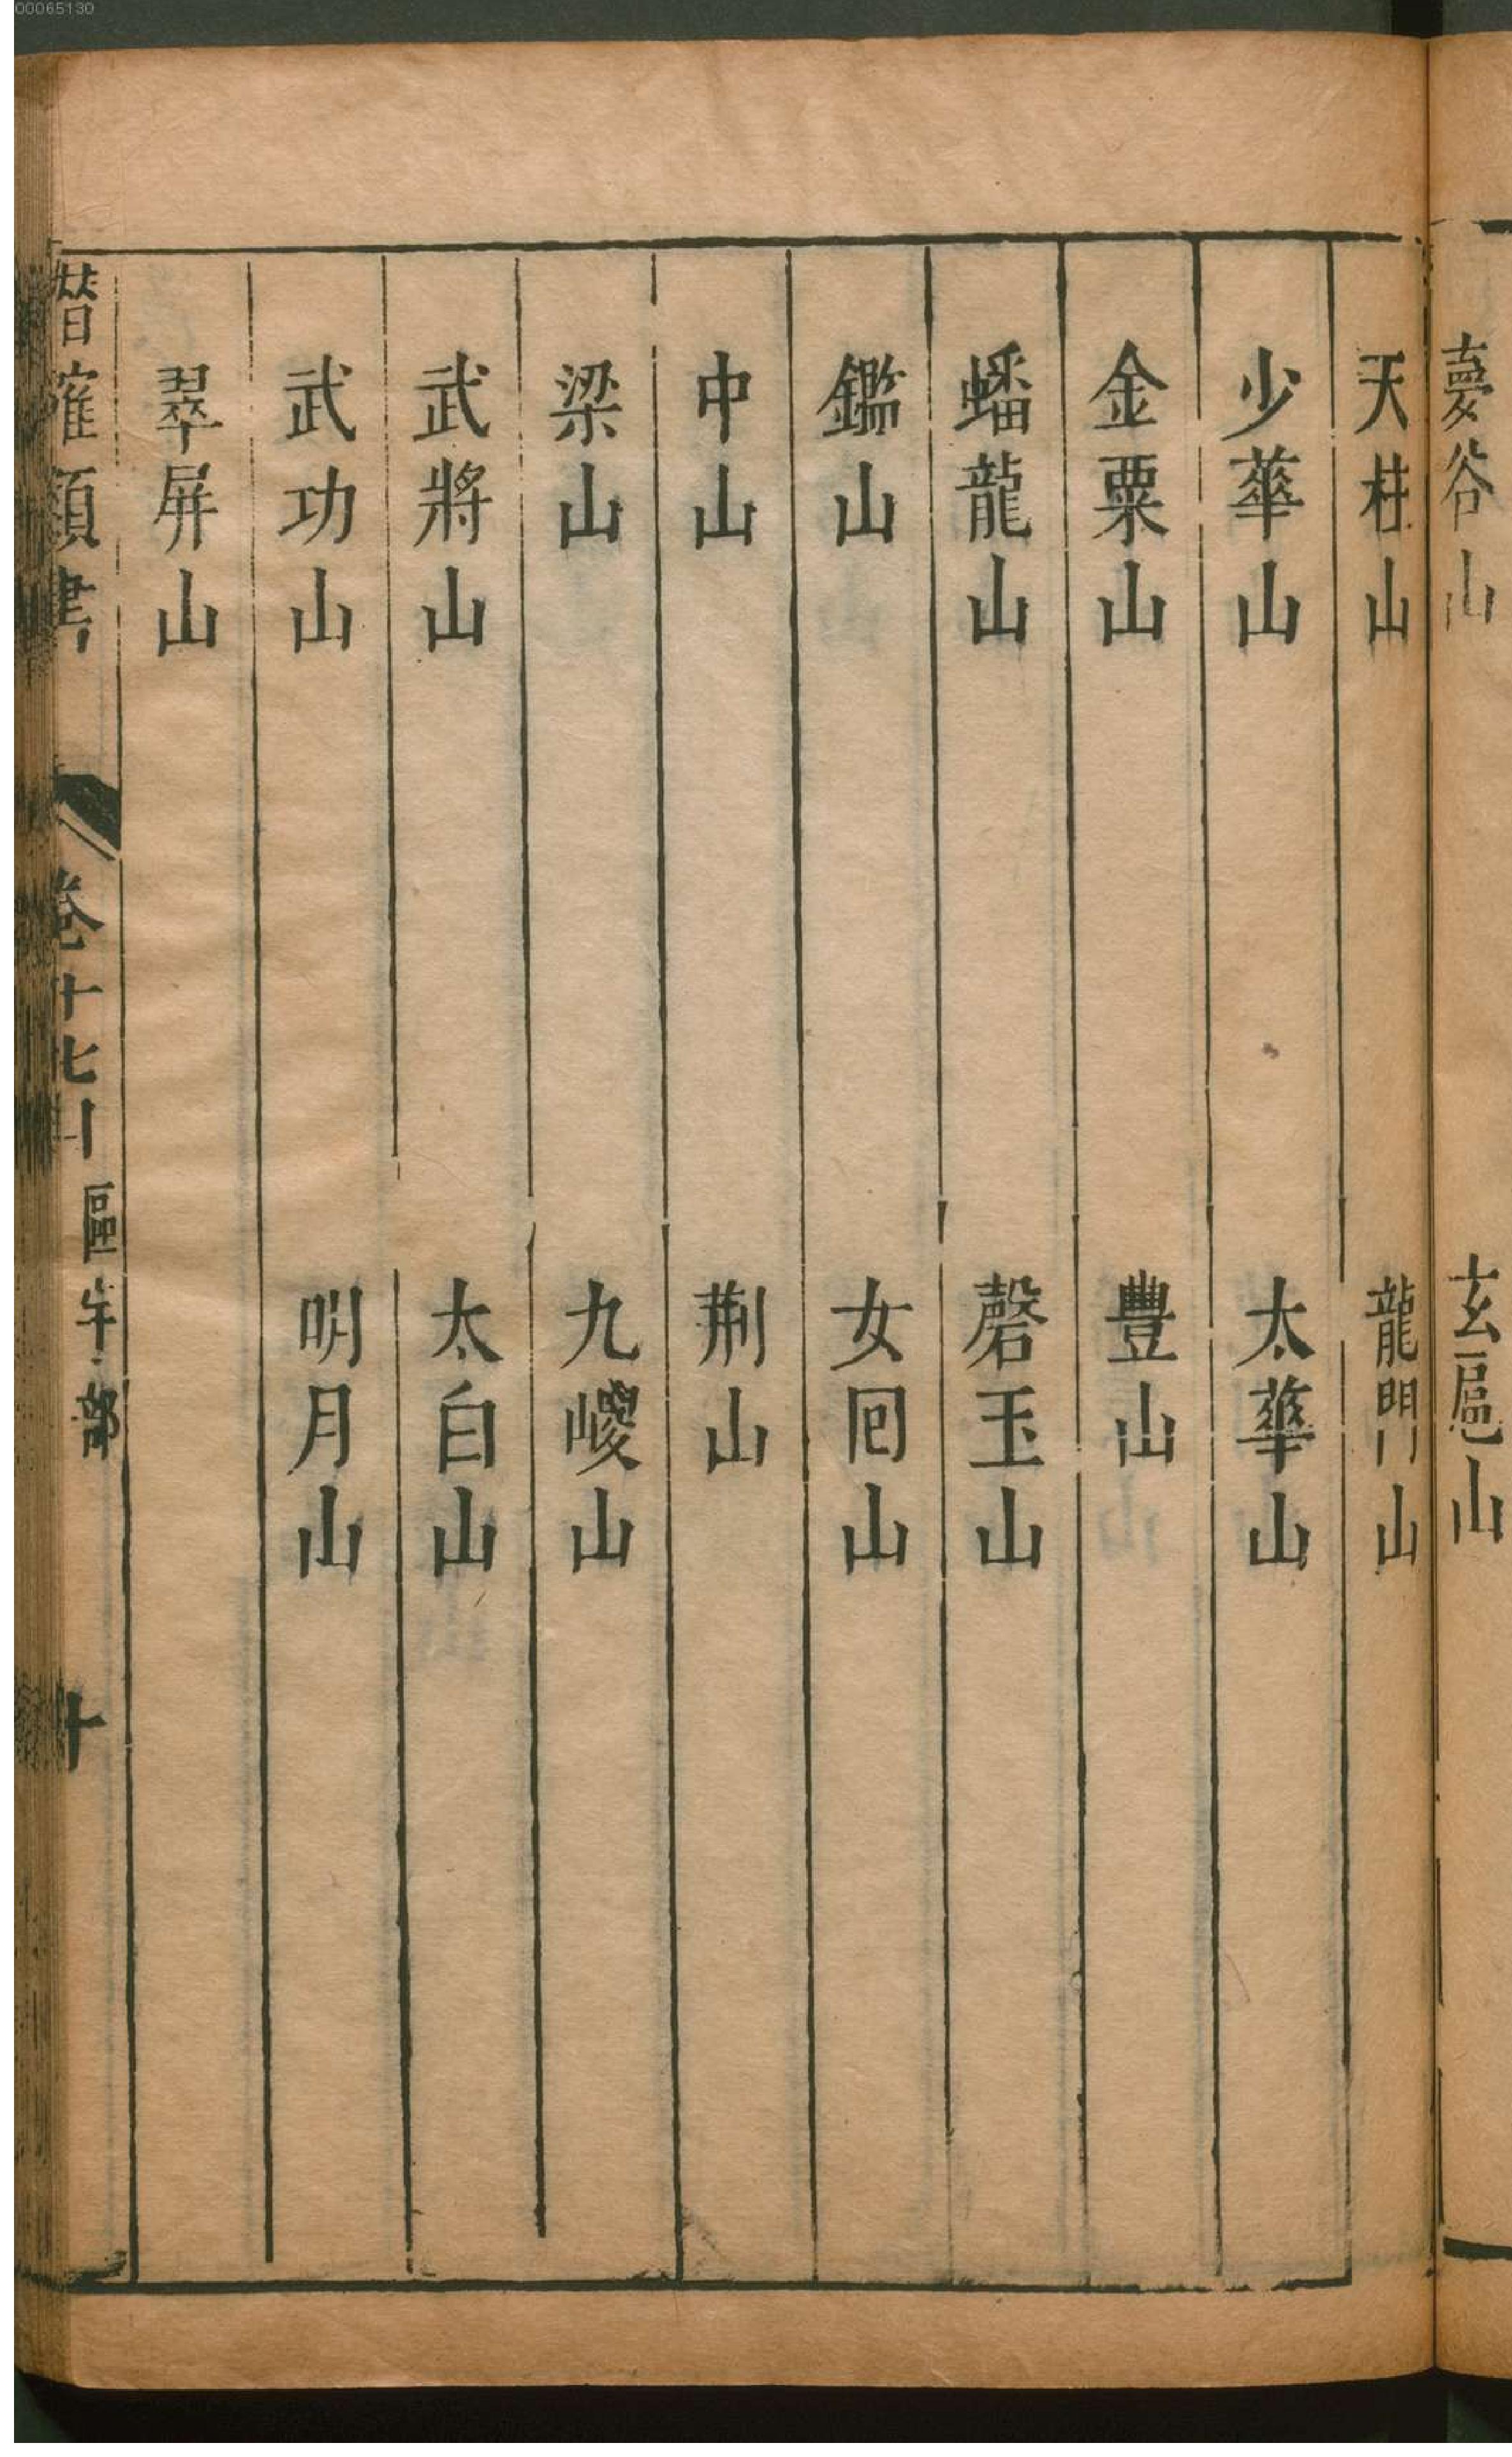 00065130
夢谷山 玄扈山
天柱山 龍門山
少華山 太華山
金粟山 豊山
蟠龍山 磬玉山
鑑山 女回山
中山 荆山
梁山 九嵕山
武將山 太白山
武功山 明月山
翠屏山
潛確類書 卷十七 區宇部 十